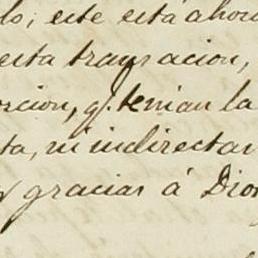 lo; este está ahora
esta transacion,
orcion, q.e tenian la
ta, ni indirectar
gracias á Dios